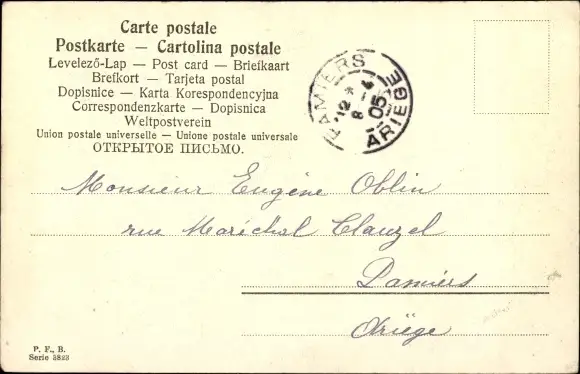 Carte postale
Postkarte — Cartolina postale
Levelező-Lap — Post card — Briefkaart
Brefkort — Tarjeta postal
Dopisnice — Karta Korespondencyjna
Correspondenzkarte — Dopisnica
Weltpostverein
Union postale universelle — Unione postale universale
ОТКРЫТОЕ ПИСЬМО.
PAMIERS
12
8 - 4
05
ARIÈGE
Monsieur Eugène Oblin
rue Maréchal Clauzel
Pamiers
Ariège
P. F., B.
Serie 3823